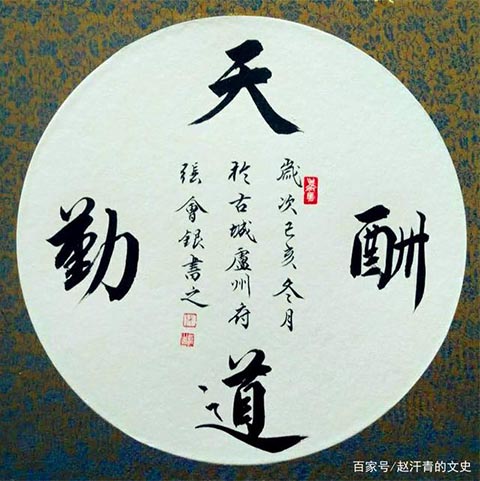 天
道
酬
勤
歲次己亥冬月
於古城廬州府
張會銀書之
百家号/赵汗青的文史